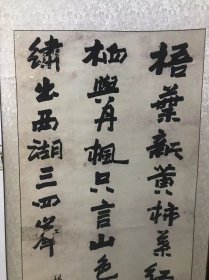 梧葉新黃柿葉紅
桕與丹楓只言山色
繡出西湖三四峯